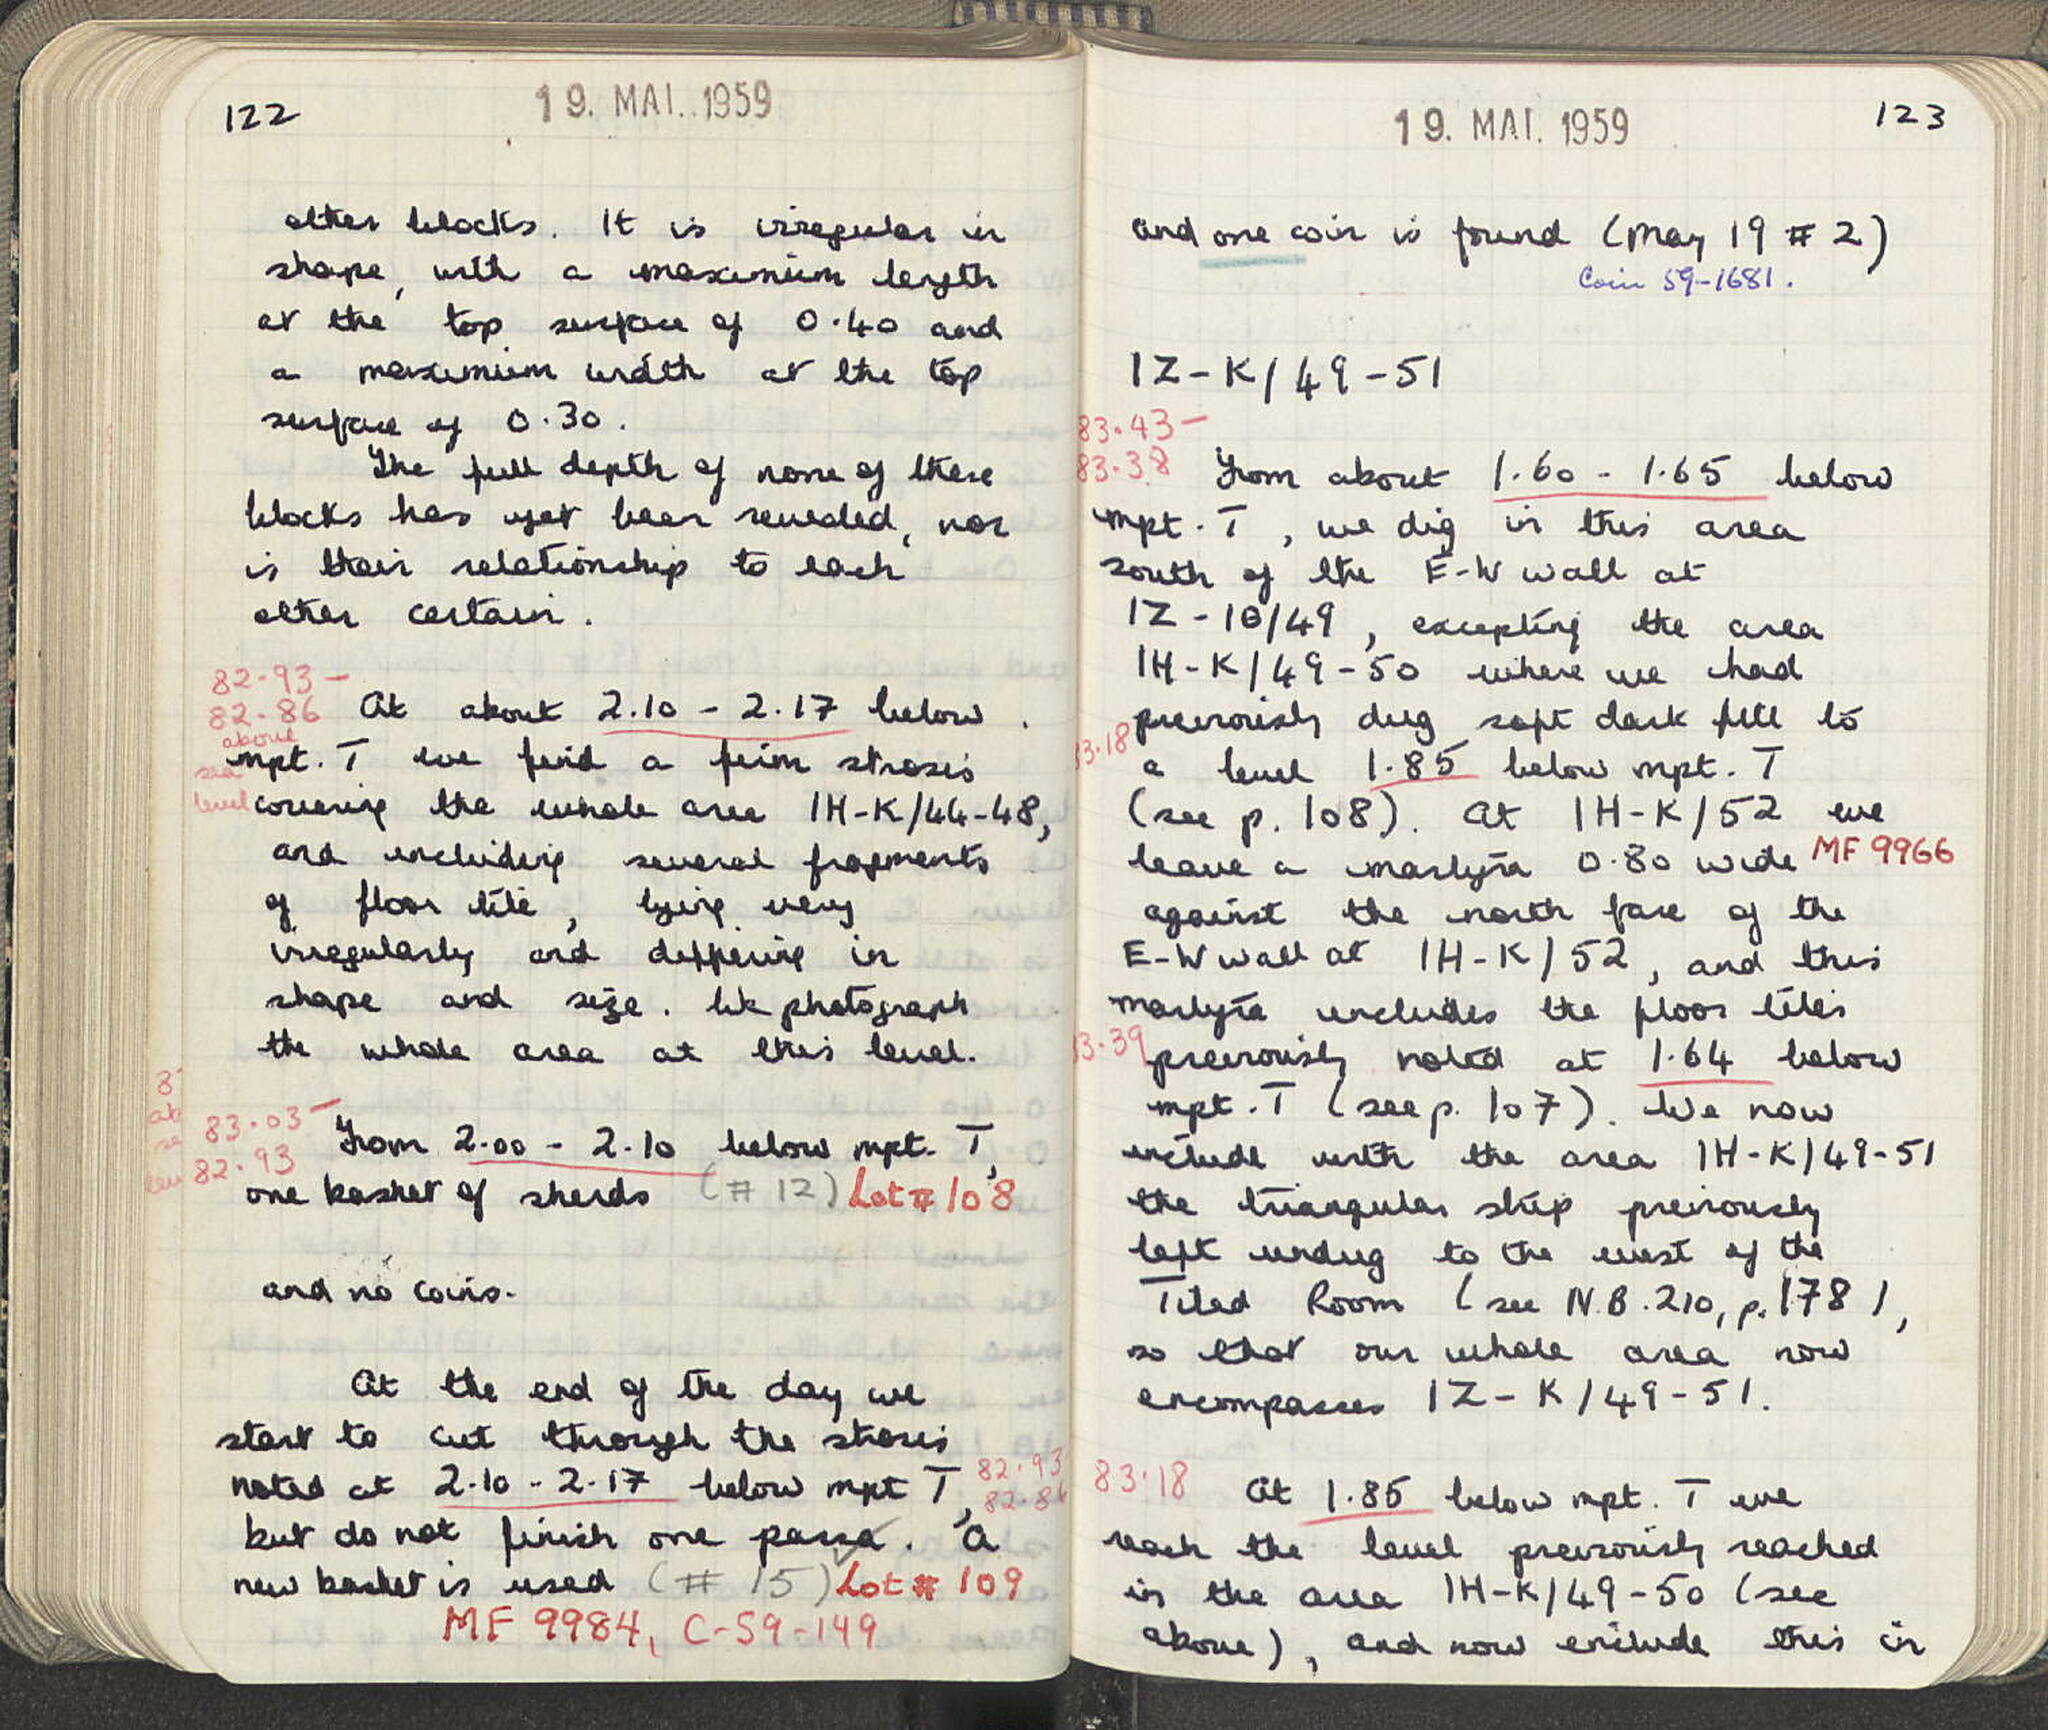 122
19. MAI. 1959
other blocks. It is irregular in
shape, with a maximum length
at the top surface of 0.40 and
a maximum width at the top
surface of 0.30.
The full depth of none of these
blocks has yet been revealed, nor
is their relationship to each
other certain.
82.93 -
82.86
above
sea
level
At about 2.10 - 2.17 below
mpt. T we find a firm strosis
covering the whole area IH-K/44-48,
and including several fragments
of floor tile, lying very
irregularly and differing in
shape and size. We photograph
the whole area at this level.
83.03 -
82.93
From 2.00 - 2.10 below mpt. T,
one basket of sherds (# 12) Lot # 108
and no coins.
At the end of the day we
start to cut through the strosis
noted at 2.10 - 2.17 below mpt T, 82.93
82.86
but do not finish one passa. A
new basket is used (# 15) Lot # 109
MF 9984, C-59-149
123
19. MAI. 1959
and one coin is found (May 19 # 2)
Coin 59-1681.
IZ-K/49-51
83.43 -
83.38
From about 1.60 - 1.65 below
mpt. T, we dig in this area
south of the E-W wall at
IZ-IΘ/49, excepting the area
IH-K/49-50 where we had
previously dug soft dark fill to
83.18
a level 1.85 below mpt. T
(see p. 108). At IH-K/52 we
leave a martyra 0.80 wide MF 9966
against the north face of the
E-W wall at IH-K/52, and this
martyra includes the floor tiles
83.39
previously noted at 1.64 below
mpt. T (see p. 107). We now
include with the area IH-K/49-51
the triangular strip previously
left undug to the west of the
Tiled Room (see N.B. 210, p. 178),
so that our whole area now
encompasses IZ-K/49-51.
83.18
At 1.85 below mpt. T we
reach the level previously reached
in the area IH-K/49-50 (see
above), and now include this in